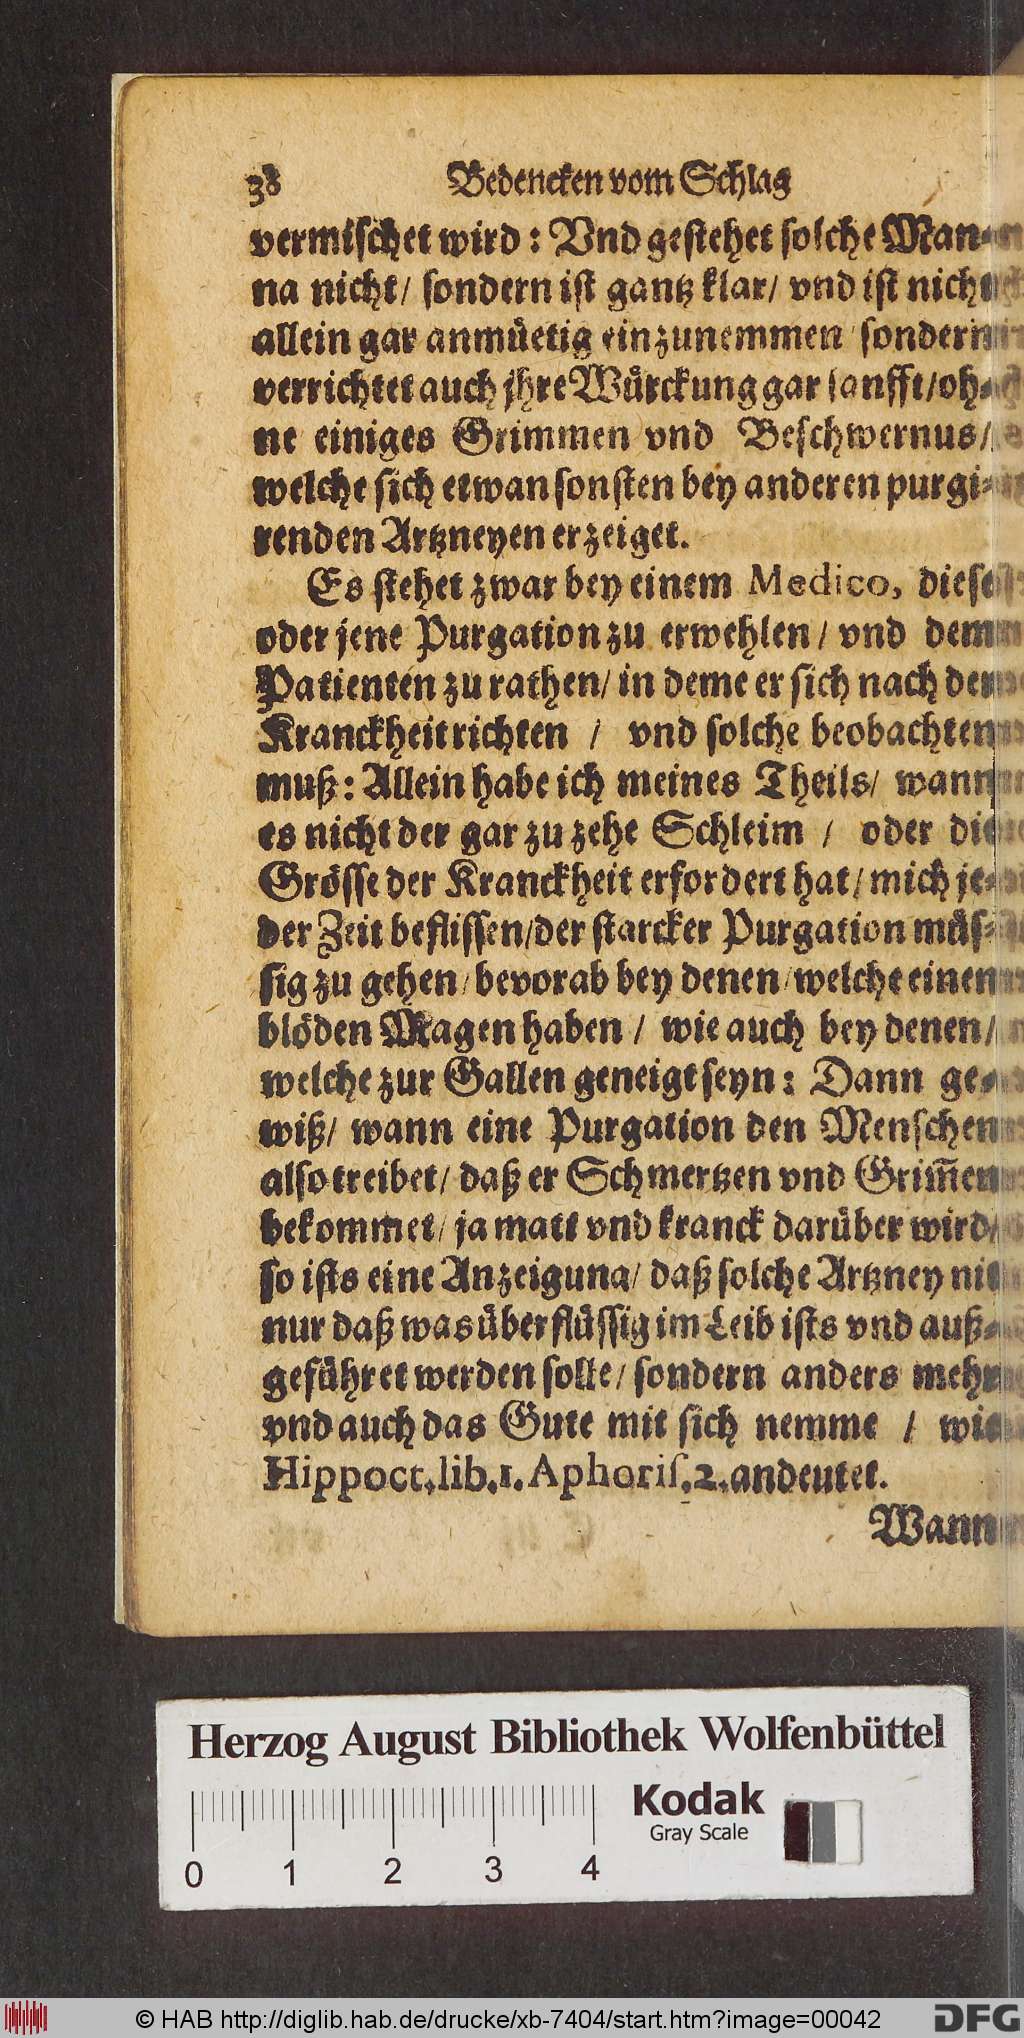 38 Bedencken vom Schlag
vermischet wird: Vnd gestehet solche Man-
na nicht/ sondern ist gantz klar/ vnd ist nicht
allein gar anmuͤetig einzunemmen/ sondern
verrichtet auch jhre Wuͤrckung gar sanfft/ oh-
ne einiges Grimmen vnd Beschwernus/
welche sich etwan sonsten bey anderen purgi-
renden Artzneyen erzeiget.
Es stehet zwar bey einem Medico, diese
oder jene Purgation zu erwehlen/ vnd dem
Patienten zu rathen/ in deme er sich nach der
Kranckheit richten / vnd solche beobachten
muß: Allein habe ich meines Theils/ wann
es nicht der gar zu zehe Schleim / oder die
Groͤsse der Kranckheit erfordert hat/ mich je-
der Zeit beflissen/ der starcker Purgation muͤs-
sig zu gehen/ bevorab bey denen/ welche einen
bloͤden Magen haben / wie auch bey denen/
welche zur Gallen geneigt seyn: Dann ge-
wiß/ wann eine Purgation den Menschen
also treibet/ daß er Schmertzen vnd Grim̅en
bekommet/ ja matt vnd kranck daruͤber wird/
so ists eine Anzeigung/ daß solche Artzney nit
nur daß was uͤberfluͤssig im Leib ists vnd auß-
gefuͤhret werden solle/ sondern anders mehr
vnd auch das Gute mit sich nemme / wie
Hippocr. lib. 1. Aphoris. 2. andeutet.
Wann
Herzog August Bibliothek Wolfenbüttel
Kodak
Gray Scale
0 1 2 3 4
© HAB http://diglib.hab.de/drucke/xb-7404/start.htm?image=00042
DFG